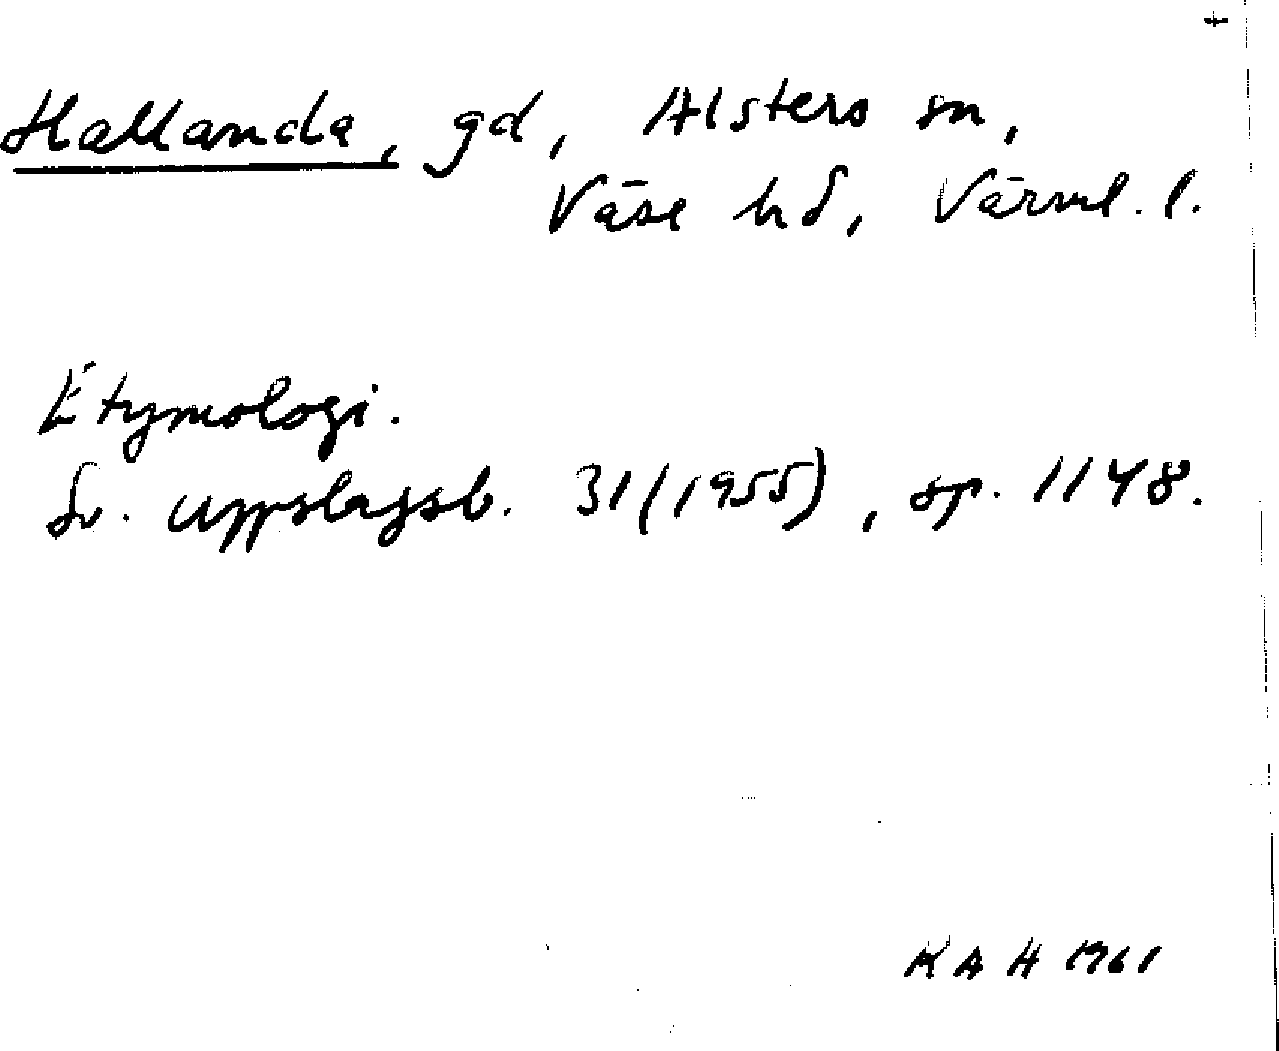 Hallanda, gd, Alsters sn,
Väse hd, Värml. l.
Etymologi.
Sv. uppslagsb. 31 (1955), sp. 1148.
KAH 1961